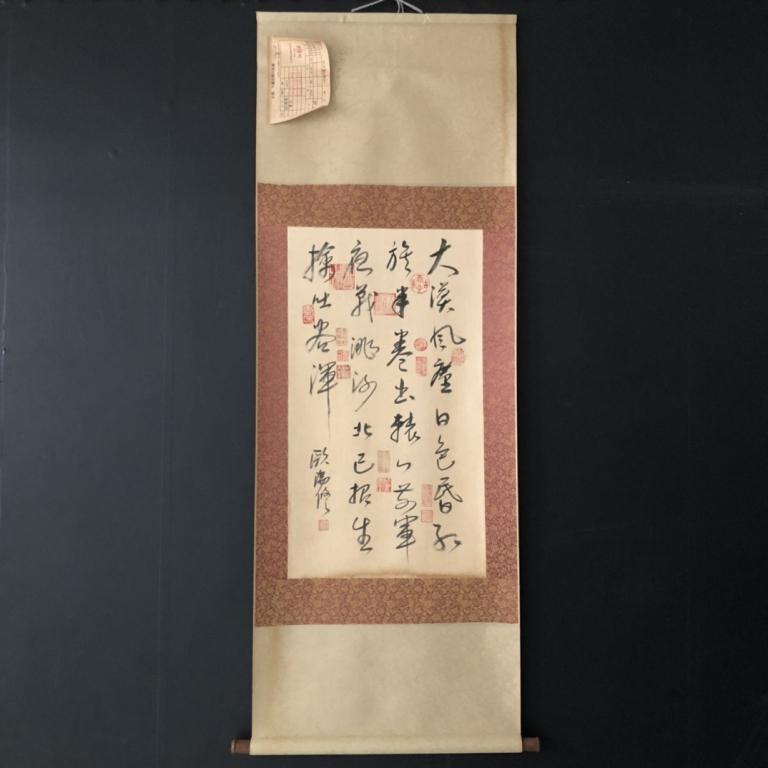 大漠風塵日色昏紅
旗半卷出轅門前軍
夜戰洮河北已報生
擒吐谷渾
歐陽修